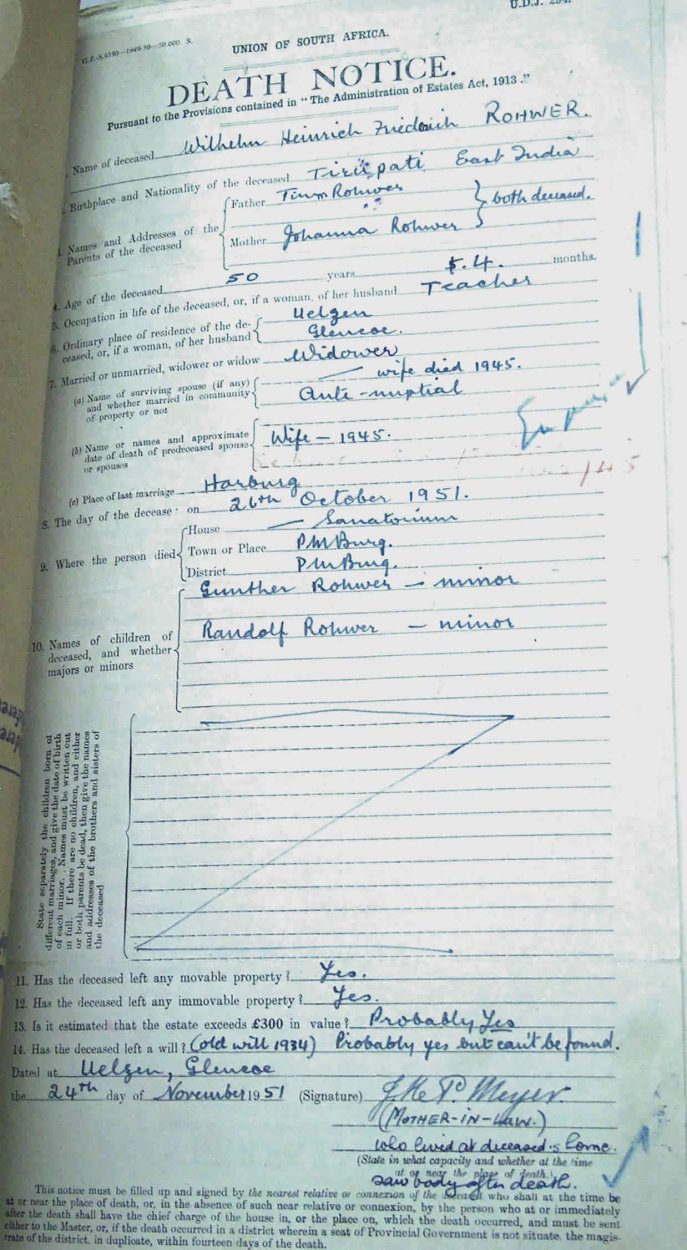 U.D.J.
G.P.-S.6190—1949-50—50,000 S.
UNION OF SOUTH AFRICA.
DEATH NOTICE.
Pursuant to the Provisions contained in "The Administration of Estates Act, 1913."
Name of deceased Wilhelm Heinrich Friedrich ROHWER.
Birthplace and Nationality of the deceased Tirupati East India
3. Names and Addresses of the Parents of the deceased
Father Timm Rohwer
Mother Johanna Rohwer
both deceased.
4. Age of the deceased 50 years 4. months.
5. Occupation in life of the deceased, or, if a woman, of her husband Teacher
6. Ordinary place of residence of the deceased, or, if a woman, of her husband
Uelzen
Glencoe.
7. Married or unmarried, widower or widow Widower
(a) Name of surviving spouse (if any) and whether married in community of property or not
— wife died 1945.
Ante-nuptial
(b) Name or names and approximate date of death of predeceased spouse or spouses
Wife – 1945.
(c) Place of last marriage Harburg
8. The day of the decease: on 26th October 1951.
9. Where the person died
House — Sanatorium
Town or Place PMBurg.
District PMBurg.
10. Names of children of deceased, and whether majors or minors
Gunther Rohwer – minor
Randolf Rohwer – minor
State separately the children born of different marriages, and give the date of birth of each minor. Names must be written out in full. If there are no children, and either or both parents be dead, then give the names and addresses of the brothers and sisters of the deceased
11. Has the deceased left any movable property? Yes.
12. Has the deceased left any immovable property? Yes.
13. Is it estimated that the estate exceeds £300 in value? Probably Yes
14. Has the deceased left a will? (old will 1934) Probably yes but can't be found.
Dated at Uelzen, Glencoe
the 24th day of November 1951 (Signature) Meyer.
(MOTHER-IN-LAW.)
who lived at deceased's home.
(State in what capacity and whether at the time
at or near the place of death.)
saw body after death.
This notice must be filled up and signed by the nearest relative or connexion of the deceased who shall at the time be
at or near the place of death, or, in the absence of such near relative or connexion, by the person who at or immediately
after the death shall have the chief charge of the house in, or the place on, which the death occurred, and must be sent
either to the Master, or, if the death occurred in a district wherein a seat of Provincial Government is not situate, the magis-
trate of the district, in duplicate, within fourteen days of the death.